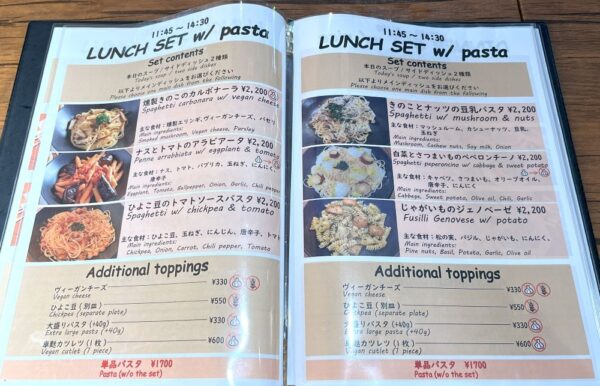 11:45 ～ 14:30
LUNCH SET w/ pasta
Set contents
本日のスープ/サイドディッシュ２種類
Today's soup / two side dishes
以下よりメインディッシュをお選びください
Please choose one main dish from the following
燻製きのこのカルボナーラ ¥2,200
Spaghetti carbonara w/ vegan cheese
主な食材：燻製エリンギ、ヴィーガンチーズ、パセリ
Main ingredients:
Smoked mushroom, Vegan cheese, Parsley
ナスとトマトのアラビアータ ¥2,200
Penne arrabbiata w/ eggplant & tomato
主な食材：ナス、トマト、パプリカ、玉ねぎ、にんにく、
唐辛子
Main ingredients:
Eggplant, Tomato, Bellpepper, Onion, Garlic, Chili pepper
ひよこ豆のトマトソースパスタ ¥2,200
Spaghetti w/ chickpea & tomato
主な食材：ひよこ豆、玉ねぎ、にんじん、唐辛子、トマト
Main ingredients:
Chickpea, Onion, Carrot, Chili pepper, Tomato
Additional toppings
ヴィーガンチーズ ¥330
Vegan cheese
ひよこ豆(別皿) ¥550
Chickpea (separate plate)
大盛りパスタ (+40g) ¥330
Extra large pasta (+40g)
車麩カツレツ (１枚) ¥600
Vegan cutlet (1 piece)
単品パスタ ¥1700
Pasta (w/o the set)
11:45 ～ 14:30
LUNCH SET w/ pasta
Set contents
本日のスープ/サイドディッシュ２種類
Today's soup / two side dishes
以下よりメインディッシュをお選びください
Please choose one main dish from the following
きのことナッツの豆乳パスタ ¥2,200
Spaghetti w/ mushroom & nuts
主な食材：マッシュルーム、カシューナッツ、豆乳、
玉ねぎ
Main ingredients:
Mushroom, Cashew nuts, Soy milk, Onion
白菜とさつまいものペペロンチーノ ¥2,200
Spaghetti peperoncino w/ cabbage & sweet potato
主な食材：キャベツ、さつまいも、オリーブオイル、
唐辛子、にんにく
Main ingredients:
Cabbege, Sweet potato, Olive oil, Chili, Garlic
じゃがいものジェノベーゼ ¥2,200
Fusilli Genovese w/ potato
主な食材：松の実、バジル、じゃがいも、にんにく、
Main ingredients:
Pine nuts, Basil, Potato, Garlic, Olive oil
Additional toppings
ヴィーガンチーズ ¥330
Vegan cheese
ひよこ豆(別皿) ¥550
Chickpea (separate plate)
大盛りパスタ (+40g) ¥330
Extra large pasta (+40g)
車麩カツレツ (１枚) ¥600
Vegan cutlet (1 piece)
単品パスタ ¥1700
Pasta (w/o the set)